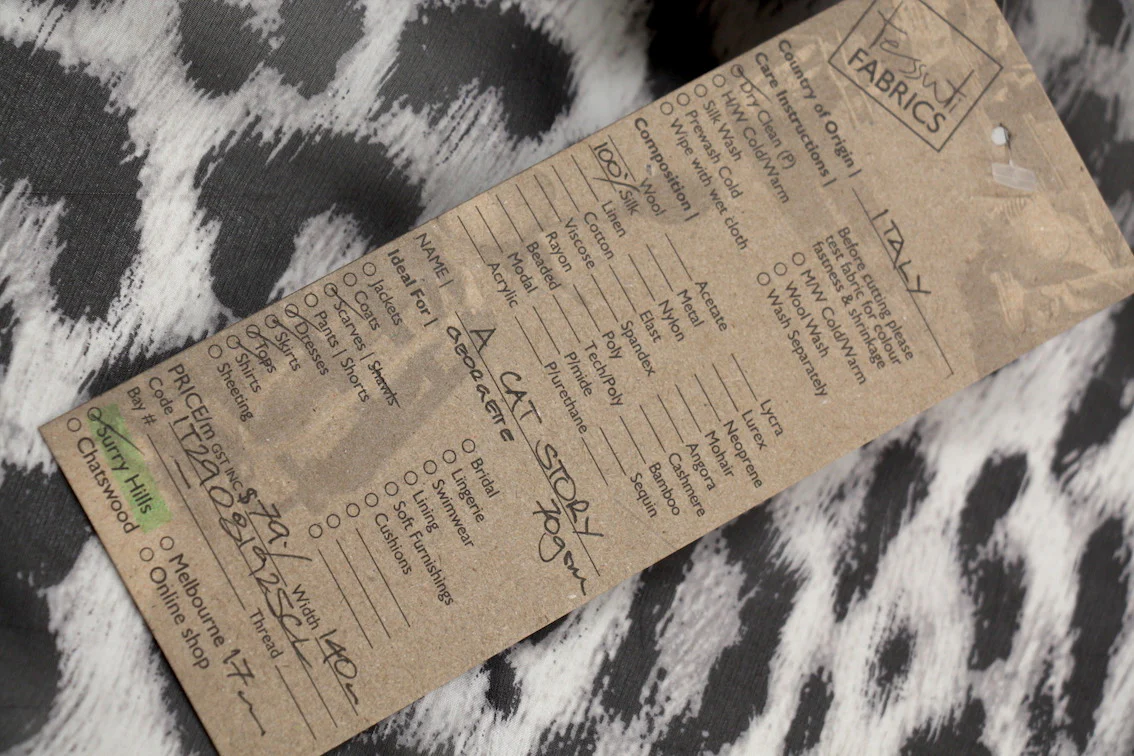 Tessuti
FABRICS
Country of Origin | ITALY
Care Instructions |
Dry Clean (P)
H/W Cold/Warm
Silk Wash
Prewash Cold
Wipe with wet cloth
Before cutting please
test fabric for colour
fastness & shrinkage
M/W Cold/Warm
Wool Wash
Wash Separately
Composition |
Wool
100% Silk
Linen
Cotton
Viscose
Rayon
Beaded
Modal
Acrylic
Acetate
Metal
Nylon
Elast
Spandex
Poly
Tech/Poly
P/mide
P/urethane
Lycra
Lurex
Neoprene
Mohair
Angora
Cashmere
Bamboo
Sequin
NAME | A CAT STORY
GEORGETTE 70gsm
Ideal For |
Jackets
Coats
Scarves | Shawls
Pants | Shorts
Dresses
Skirts
Tops
Shirts
Sheeting
Bridal
Lingerie
Swimwear
Lining
Soft Furnishings
Cushions
PRICE/m GST INC $79./ Width 140
Code Thread
Bay #
Surry Hills
Chatswood
Melbourne 17m
Online shop